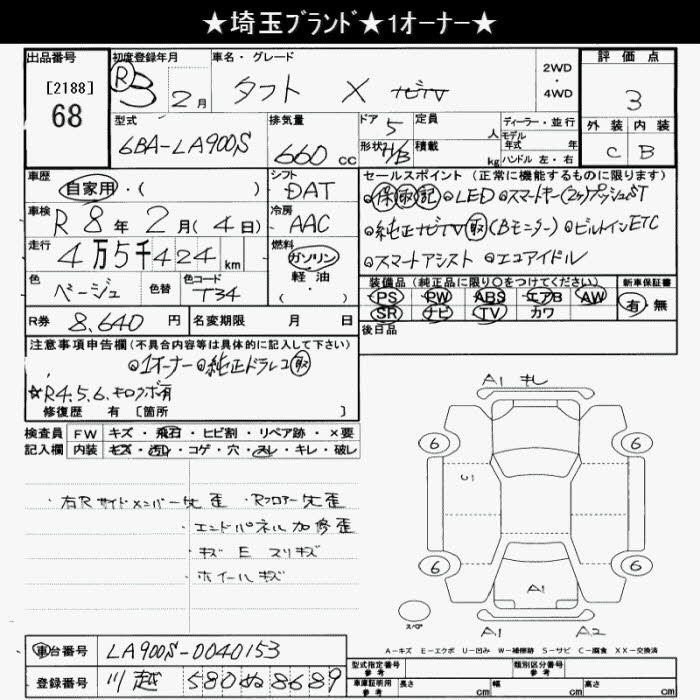 ★埼玉ブランド★1オーナー★
出品番号 初度登録年月 車名・グレード 2WD・4WD 評価点
[2188]
68
R3 2月 タフト X ナビTV 3
型式 排気量 ドア 定員 人 ディーラー・並行
6BA-LA900S 660cc 5 モデル年式 年
形状 H/B 積載 kg ハンドル 左・右
外装 内装
C B
車歴 自家用・( )
シフト DAT
車検 R8年2月(4日)
冷房 AAC
走行 4万5千424km
燃料 ガソリン 軽油・( )
色 ベージュ 色替 色コード T34
R券 8,640円 名変期限 月 日
セールスポイント(正常に機能するものに限ります)
保 取 記 LED スマートキー(2ヶ)プッシュST
純正ナビTV 取 (Bモニター) ビルトインETC
スマートアシスト エコアイドル
装備品(純正品に限り○をつけてください) 新車保証書
PS PW ABS エアB AW 有・無
SR ナビ TV カワ
後日品
注意事項申告欄(不具合内容等は具体的に記入して下さい)
1オーナー 純正ドラレコ取
☆R4.5.6.キロクボ有
修復歴 有 [箇所 ]
検査員 FW キズ・飛石・ヒビ割・リペア跡・×要
記入欄 内装 キズ・汚れ・コゲ・穴・スレ・キレ・破レ
・右Rサイドメンバー先歪 ・Rフロアー先歪
・エンドパネル加修歪
・キズ E スリキズ
・ホイールキズ
A1 キレ
6 6
U1
6 6
A1
スペア A1 A2
A-キズ E-エクボ U-凹み W-補修跡 S-サビ C-腐食 XX-交換済
車台番号 LA900S-0040153
登録番号 川越 580 ぬ 8689
型式指定番号 参考 類別区分番号 参考
車庫証明用 参考 長さ cm 幅 cm 高さ cm